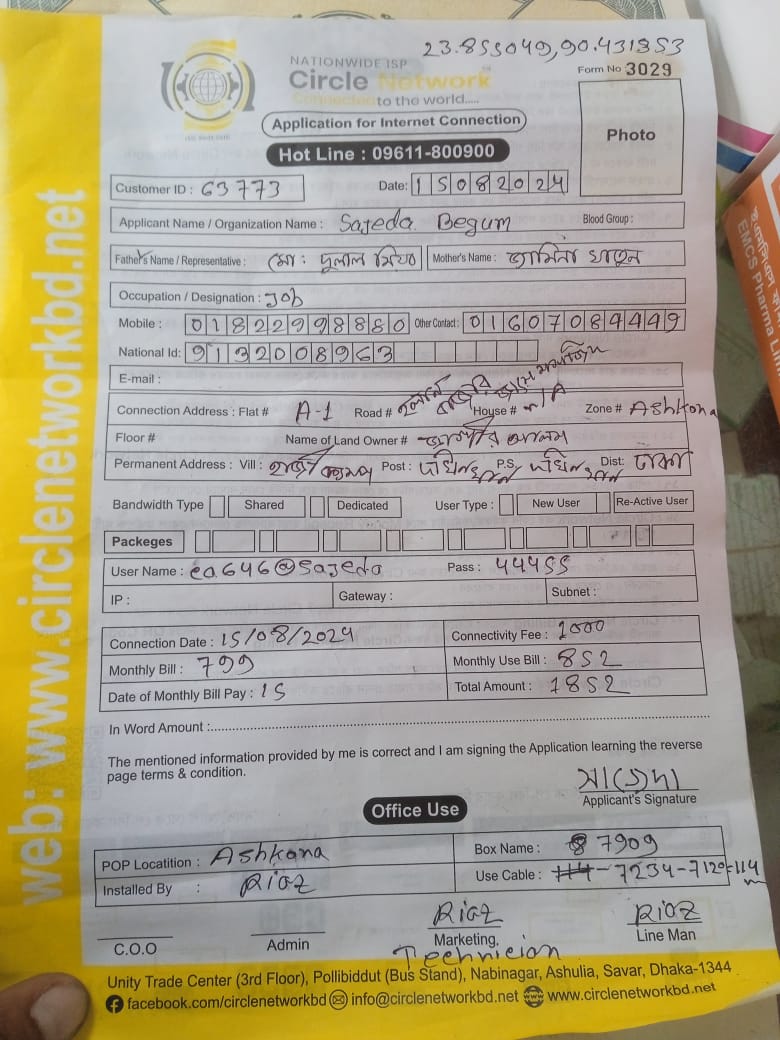 23.855049,90.431353
NATIONWIDE ISP
Circle Network
Connected to the world.....
Form No 3029
Application for Internet Connection
Photo
Hot Line : 09611-800900
Customer ID : 63773
Date: 15082024
Applicant Name / Organization Name : Sajeda Begum Blood Group :
Father's Name / Representative : মো: দুলাল মিয়া Mother's Name : জামিনা খাতুন
Occupation / Designation : Job
Mobile : 01822998880 Other Contact : 01607084449
National Id: 9132008963
E-mail :
Connection Address : Flat # A-1 Road # House # n/A Zone # Ashkona
Floor # Name of Land Owner # আলম
Permanent Address : Vill : Post : P.S. Dist: ঢাকা
Bandwidth Type Shared Dedicated User Type : New User Re-Active User
Packeges
User Name : ea646@sajeda Pass : 44455
IP : Gateway : Subnet :
Connection Date : 15/08/2024 Connectivity Fee : 1000
Monthly Bill : 799 Monthly Use Bill : 852
Date of Monthly Bill Pay : 15 Total Amount : 1852
In Word Amount :
The mentioned information provided by me is correct and I am signing the Application learning the reverse
page terms & condition.
সাজেদা
Applicant's Signature
Office Use
POP Locatition : Ashkona Box Name : 7909
Installed By : Riaz Use Cable : 7234-7120=114 m
Riaz Riaz
C.O.O Admin Marketing, Line Man
Technician
Unity Trade Center (3rd Floor), Pollibiddut (Bus Stand), Nabinagar, Ashulia, Savar, Dhaka-1344
facebook.com/circlenetworkbd info@circlenetworkbd.net www.circlenetworkbd.net
web: www.circlenetworkbd.net
EMCS Pharma